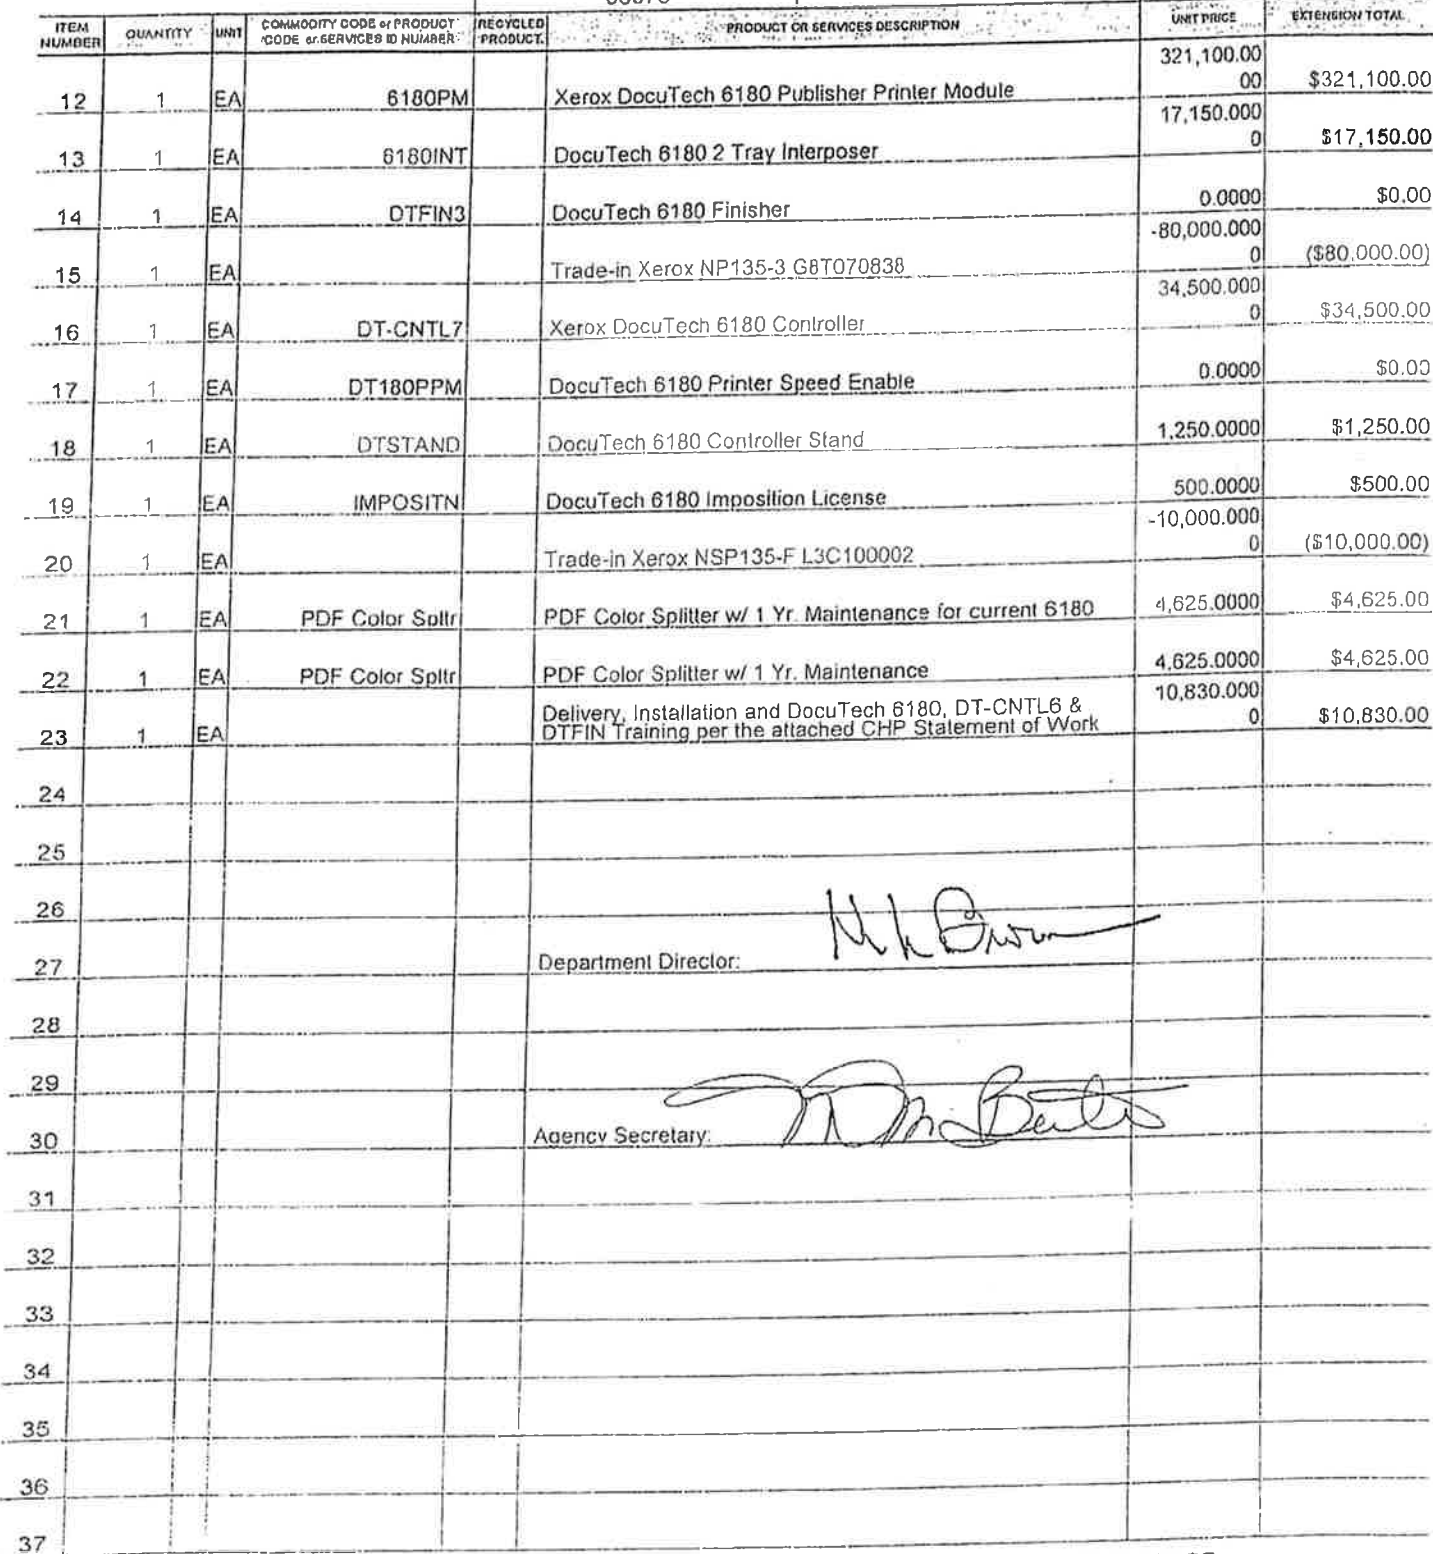 ITEM NUMBER QUANTITY UNIT COMMODITY CODE or PRODUCT CODE or SERVICES ID NUMBER RECYCLED PRODUCT PRODUCT OR SERVICES DESCRIPTION UNIT PRICE EXTENSION TOTAL
12 1 EA 6180PM Xerox DocuTech 6180 Publisher Printer Module 321,100.0000 $321,100.00
13 1 EA 6180INT DocuTech 6180 2 Tray Interposer 17,150.0000 $17,150.00
14 1 EA DTFIN3 DocuTech 6180 Finisher 0.0000 $0.00
15 1 EA Trade-in Xerox NP135-3 G8T070838 -80,000.0000 ($80,000.00)
16 1 EA DT-CNTL7 Xerox DocuTech 6180 Controller 34,500.0000 $34,500.00
17 1 EA DT180PPM DocuTech 6180 Printer Speed Enable 0.0000 $0.00
18 1 EA DTSTAND DocuTech 6180 Controller Stand 1,250.0000 $1,250.00
19 1 EA IMPOSITN DocuTech 6180 Imposition License 500.0000 $500.00
20 1 EA Trade-in Xerox NSP135-F L3C100002 -10,000.0000 ($10,000.00)
21 1 EA PDF Color Spltr PDF Color Splitter w/ 1 Yr. Maintenance for current 6180 4,625.0000 $4,625.00
22 1 EA PDF Color Spltr PDF Color Splitter w/ 1 Yr. Maintenance 4,625.0000 $4,625.00
23 1 EA Delivery, Installation and DocuTech 6180, DT-CNTL6 & DTFIN Training per the attached CHP Statement of Work 10,830.0000 $10,830.00
24
25
26
27 Department Director:
28
29
30 Agency Secretary:
31
32
33
34
35
36
37